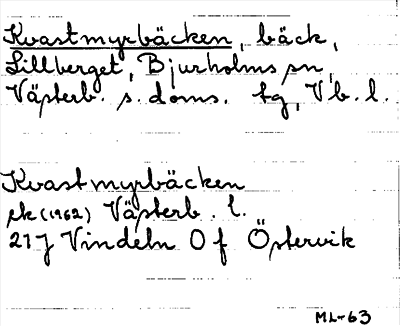 Kvastmyrbäcken, bäck,
Lillberget, Bjurholms sn,
Västerb. s. doms. tg, Vb. l.
Kvastmyrbäcken
ek (1962) Västerb. l.
21J Vindeln 0 f Östervik
ML-63